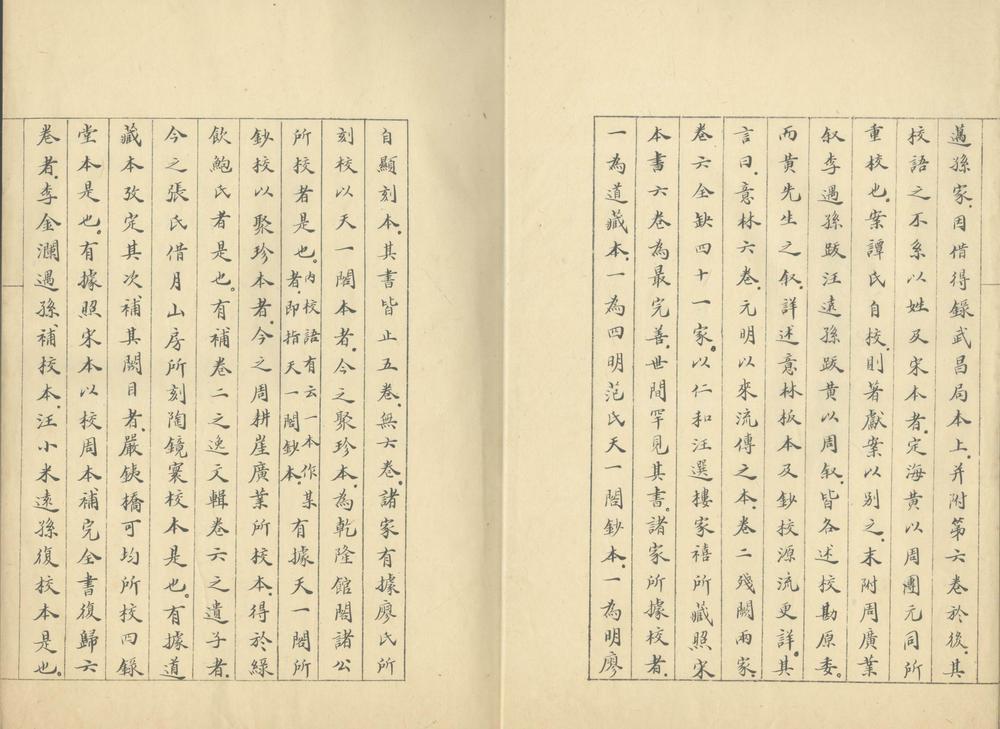 邁孫家．因借得錄武昌局本上．并附第六卷於後．其
校語之不系以姓及宋本者．定海黄以周團元同所
重校也．案譚氏自校．則著獻案以别之．末附周廣業
叙李遇孫跋汪遠孫跋黄以周叙．皆各述校勘原委．
而黄先生之叙．詳述意林板本及鈔校源流更詳．其
言曰．意林六卷．元明以來流傳之本．卷二殘闕兩家．
卷六全缺四十一家．以仁和汪選樓家禧所藏照宋
本書六卷為最完善．世間罕見其書．諸家所據校者．
一為道藏本．一為四明范氏天一閣鈔本．一為明廖
自顯刻本．其書皆止五卷．無六卷．諸家有據廖氏所
刻校以天一閣本者．今之聚珍本．為乾隆館閣諸公
所校者是也．內校語有云一本作某者．即指天一閣鈔本．有據天一閣所
鈔校以聚珍本者．今之周耕崖廣業所校本．得於綠
飲鮑氏者是也．有補卷二之逸文輯卷六之遺子者．
今之張氏借月山房所刻陶鏡寰校本是也．有據道
藏本攷定其次補其闕目者．嚴鐵橋可均所校四錄
堂本是也．有據照宋本以校周本補完全書復歸六
卷者．李金瀾遇孫補校本．汪小米遠孫復校本是也．